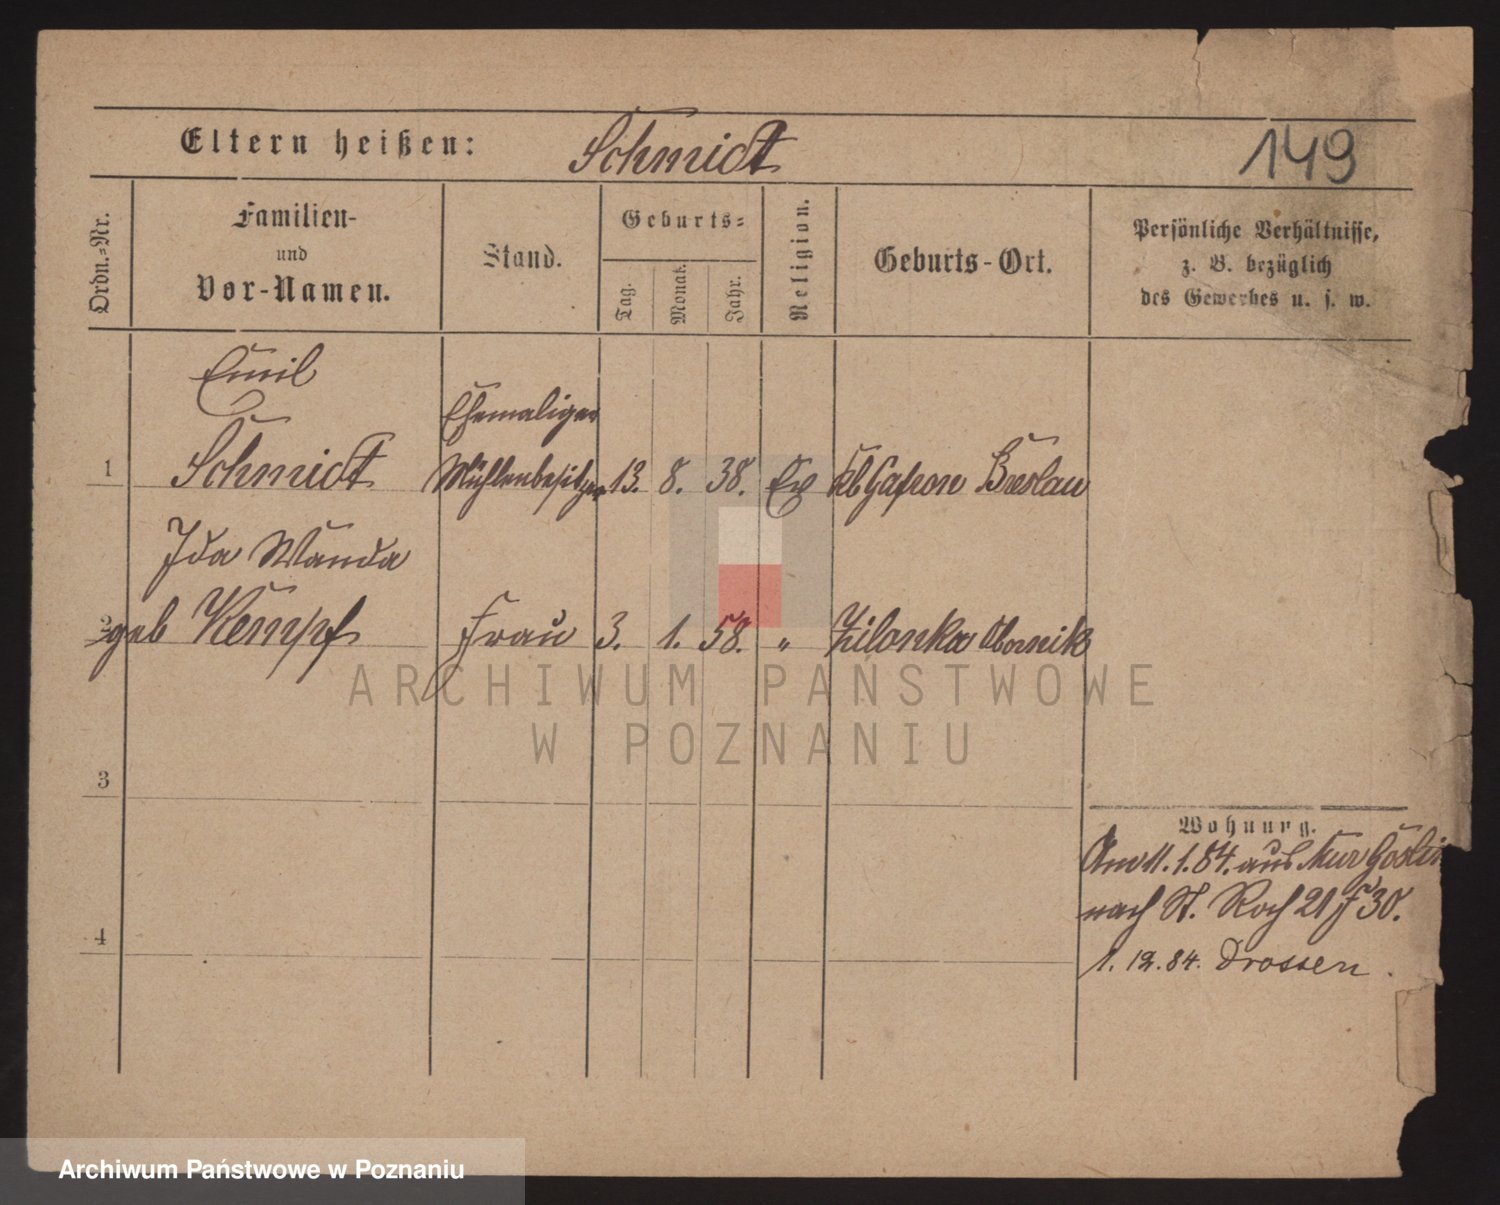 Eltern heißen: Schmidt
149
Ordn.=Nr.
Familien-
und
Vor-Namen.
Stand.
Geburts=
Tag.
Monat.
Jahr.
Religion.
Geburts-Ort.
Persönliche Verhältnisse,
z. B. bezüglich
des Gewerbes u. s. w.
Emil
Ehemaliger
1 Schmidt Mühlenbesitzer 13. 8. 38. Ev Breslau
Ida Wanda
2 geb Kempf Frau 3. 1. 58. " Zielonka Obornik
ARCHIWUM PAŃSTWOWE
W POZNANIU
3
Wohnung.
Am 11. 1. 84. aus Mur Gosli
nach St. Roch 21 F 30.
4
1. 12. 84. Drossen.
Archiwum Państwowe w Poznaniu